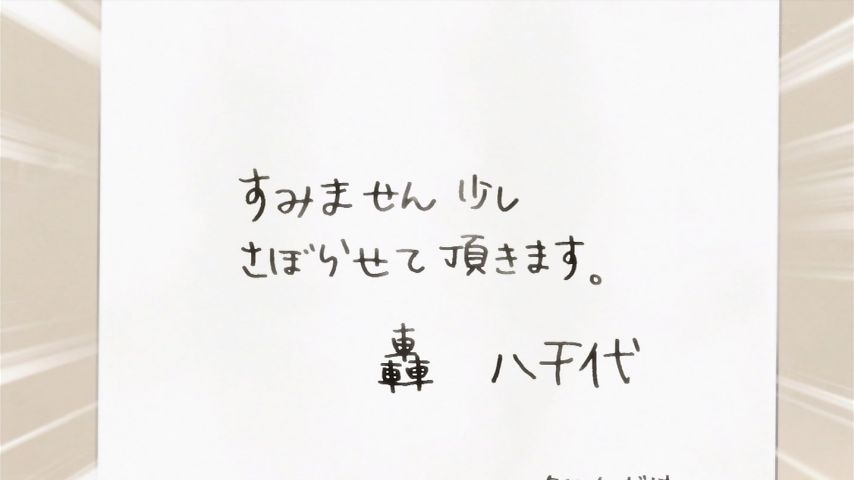 すみません 少し
さぼらせて頂きます。
轟 八千代